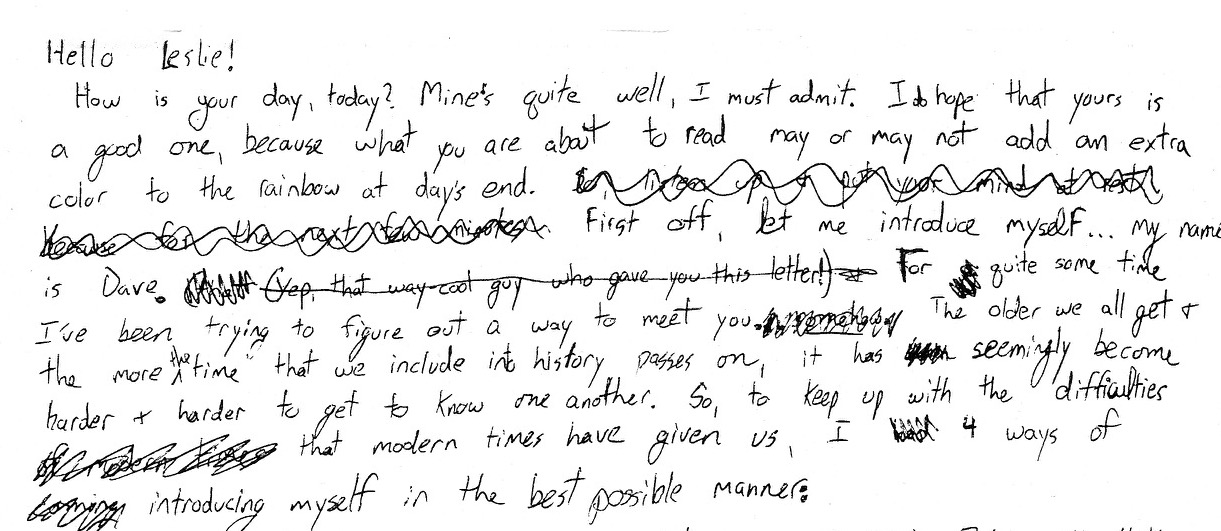 Hello Leslie!
How is your day, today? Mine's quite well, I must admit. I do hope that yours is
a good one, because what you are about to read may or may not add an extra
color to the rainbow at day's end. So, listen up & put your mind at rest
because for the next few minutes First off, let me introduce myself... my name
is Dave. (Yep, that way-cool guy who gave you this letter!) For quite some time
I've been trying to figure out a way to meet you. The older we all get &
the more the time that we include into history passes on, it has seemingly become
harder & harder to get to know one another. So, to keep up with the difficulties
of modern times that modern times have given us, I 4 ways of
introducing myself in the best possible manner: